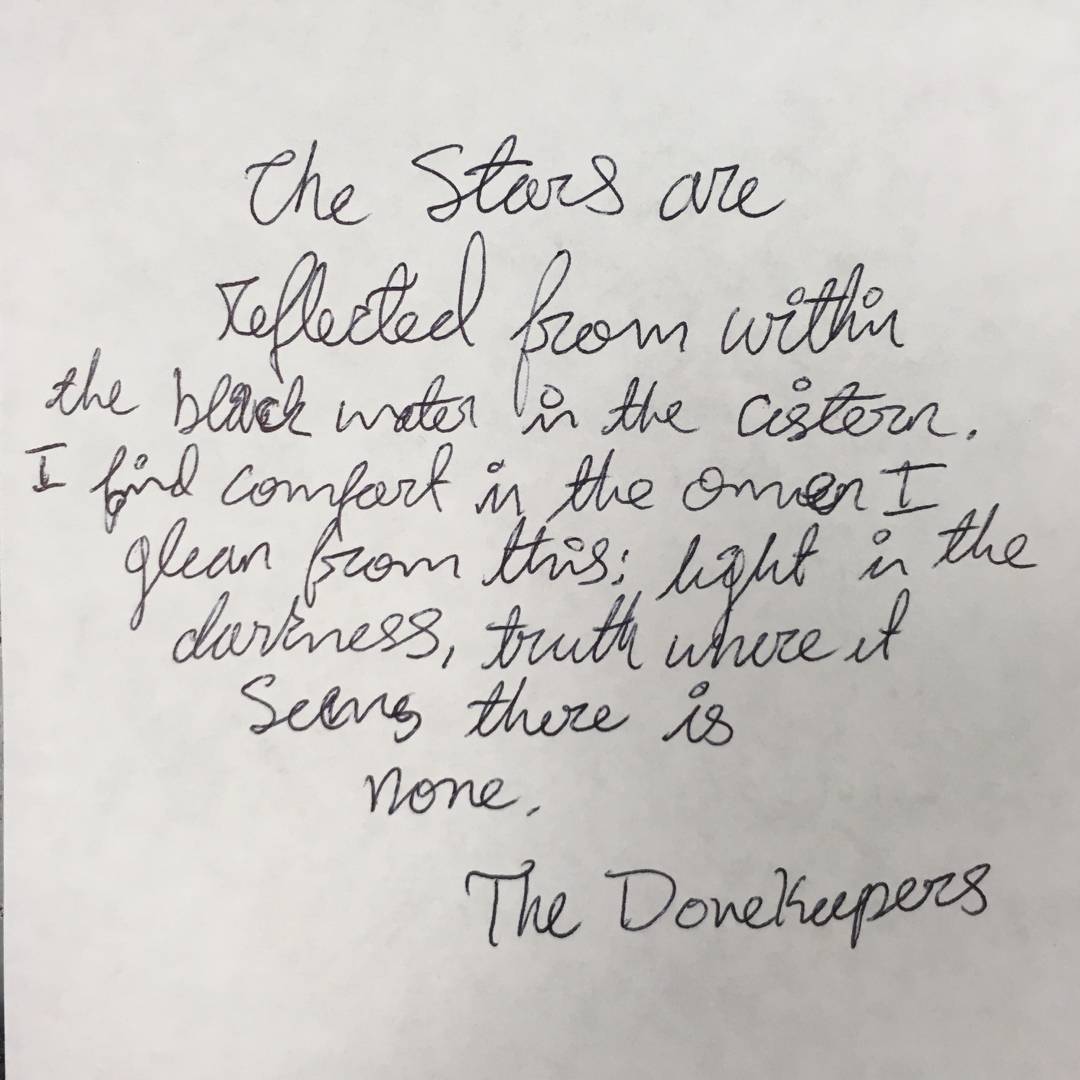 The Stars are
reflected from within
the black water in the cistern.
I find comfort in the omen I
glean from this: light in the
darkness, truth where it
Seems there is
none.
The DoveKeepers